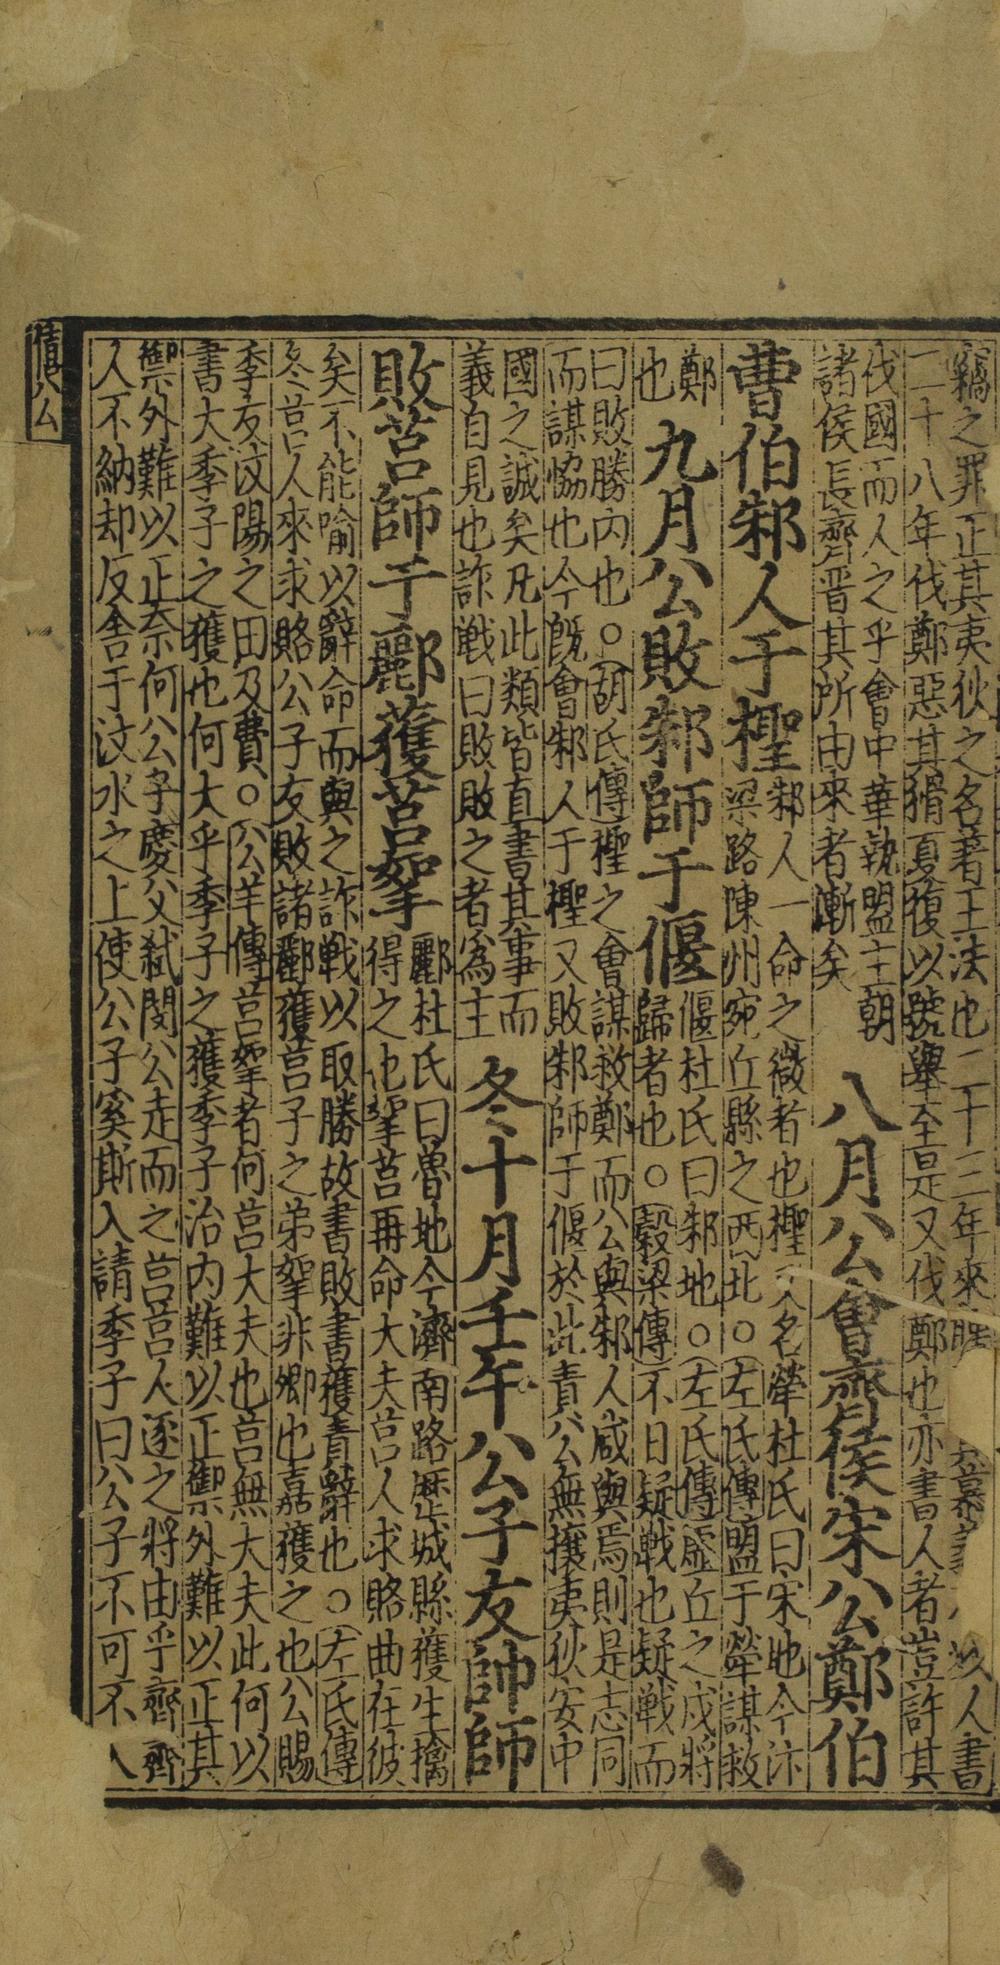 竊之罪正其夷狄之名著王法也二十三年來聘 以人書
二十八年伐鄭惡其猾夏復以號舉至是又伐鄭也亦書人者豈許其
伐國而人之乎會中華執盟主朝
諸侯長齊晋其所由來者漸矣
八月公會齊侯宋公鄭伯
曹伯邾人于檉
邾人一命之微者也檉 名犖杜氏曰宋地今汴
梁路陳州宛丘縣之西北○左氏傳盟于犖謀救
鄭
也
九月公敗邾師于偃
偃杜氏曰邾地○左氏傳虛丘之戍將
歸者也○穀梁傳不日疑戰也疑戰而
曰敗勝內也○胡氏傳檉之會謀救鄭而公與邾人咸與焉則是志同
而謀恊也今旣會邾人于檉又敗邾師于偃於此責公無攘夷狄安中
國之誠矣凡此類皆直書其事而
義自見也詐戰曰敗敗之者爲主
冬十月壬午公子友帥師
敗莒師于酈獲莒挐
酈杜氏曰魯地今濟南路歷城縣獲生擒
得之也挐莒再命大夫莒人求賂曲在彼
矣不能喻以辭命而與之詐戰以取勝故書敗書獲責辭也○左氏傳
冬莒人來求賂公子友敗諸酈獲莒子之弟挐非卿也嘉獲之也公賜
季友汶陽之田及費○公羊傳莒挐者何莒大夫也莒無大夫此何以
書大季子之獲也何大乎季子之獲季子治內難以正禦外難以正其
禦外難以正奈何公子慶父弒閔公走而之莒莒人逐之將由乎齊齊
人不納却反舍于汶水之上使公子奚斯入請季子曰公子不可不入
僖公